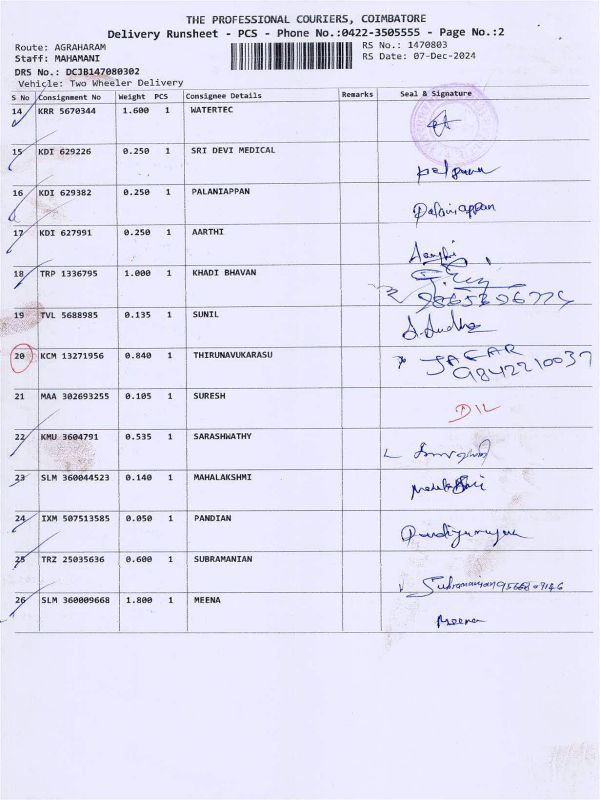 THE PROFESSIONAL COURIERS, COIMBATORE
Delivery Runsheet - PCS - Phone No.:0422-3505555 - Page No.:2
Route: AGRAHARAM
RS No.: 1470803
Staff: MAHAMANI
RS Date: 07-Dec-2024
DRS No.: DCJB147080302
Vehicle: Two Wheeler Delivery
S No Consignment No Weight PCS Consignee Details Remarks Seal & Signature
14 KRR 5670344 1.600 1 WATERTEC
15 KDI 629226 0.250 1 SRI DEVI MEDICAL
16 KDI 629382 0.250 1 PALANIAPPAN Palaniappan
17 KDI 627991 0.250 1 AARTHI
18 TRP 1336795 1.000 1 KHADI BHAVAN
19 TVL 5688985 0.135 1 SUNIL
20 KCM 13271956 0.840 1 THIRUNAVUKARASU JAFAR
9842210037
21 MAA 302693255 0.105 1 SURESH DIL
22 KMU 3604791 0.535 1 SARASHWATHY
23 SLM 360044523 0.140 1 MAHALAKSHMI
24 IXM 507513585 0.050 1 PANDIAN
25 TRZ 25035636 0.600 1 SUBRAMANIAN Subramanian
26 SLM 360009668 1.800 1 MEENA Meena